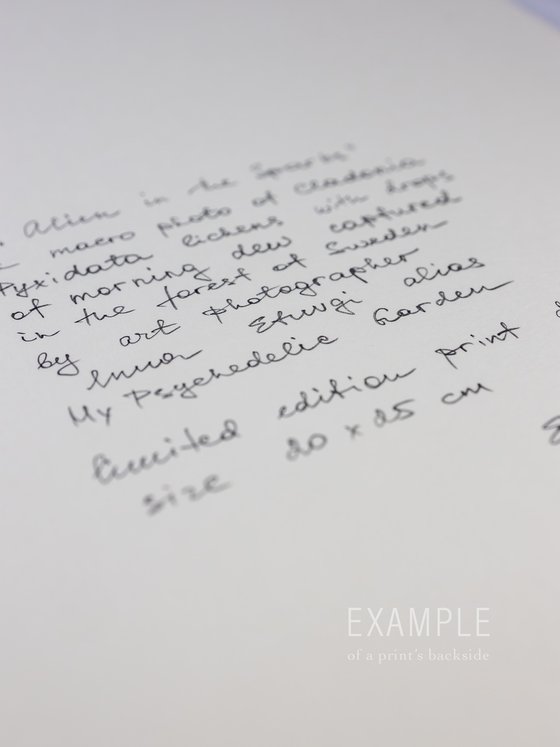 Alien in the Sparks"
macro photo of Cladonia
Pyxidata lichens with drops
of morning dew captured
in the forest of Sweden
by art photographer
Inna Etuvgi alias
My Psychedelic Garden
limited edition print
size 20 x 25 cm
EXAMPLE
of a print's backside